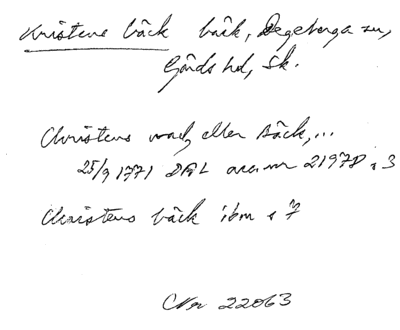 Kristens bäck bäck, Degeberga sn,
Gärds hd, Sk.
Christens wad, eller Bäck,...
25/9 1771 DAL avd nr 2197 s 3
Christens bäck ibm s 7
CNr 22063